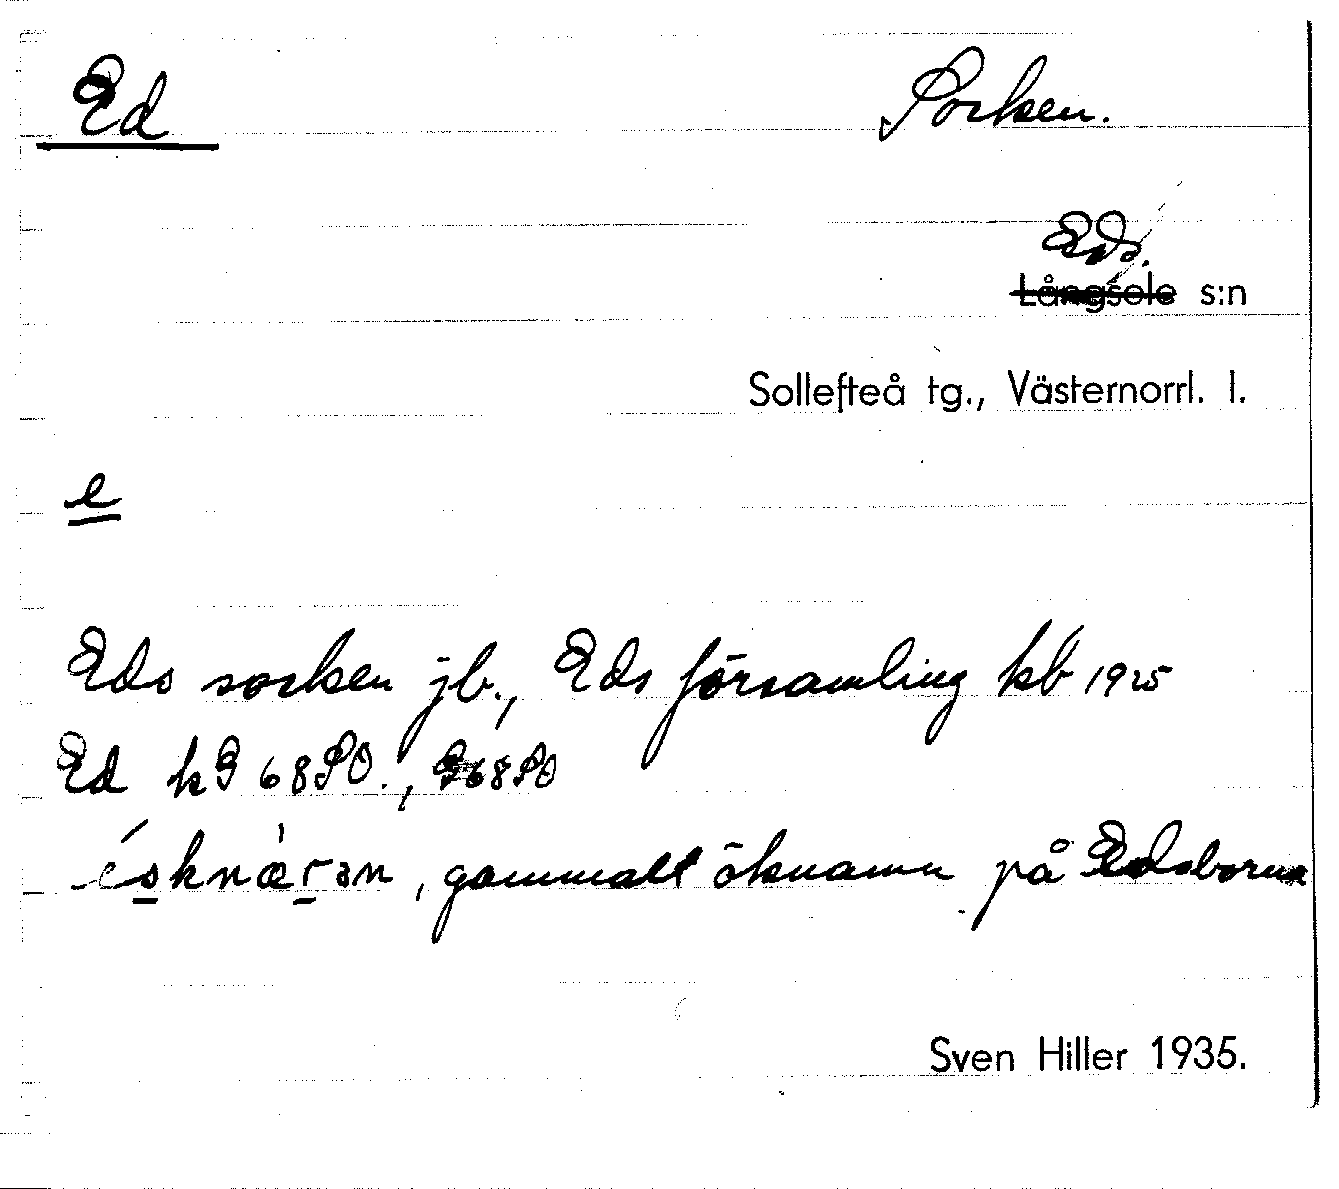 Ed Socken.
Eds.
Långsele s:n
Sollefteå tg., Västernorrl. l.
e
Eds socken jb., Eds församling kb 1925
Ed kG 68SO., G68SO
ésknæ̀rən, gammalt öknamn på Edsborna
Sven Hiller 1935.